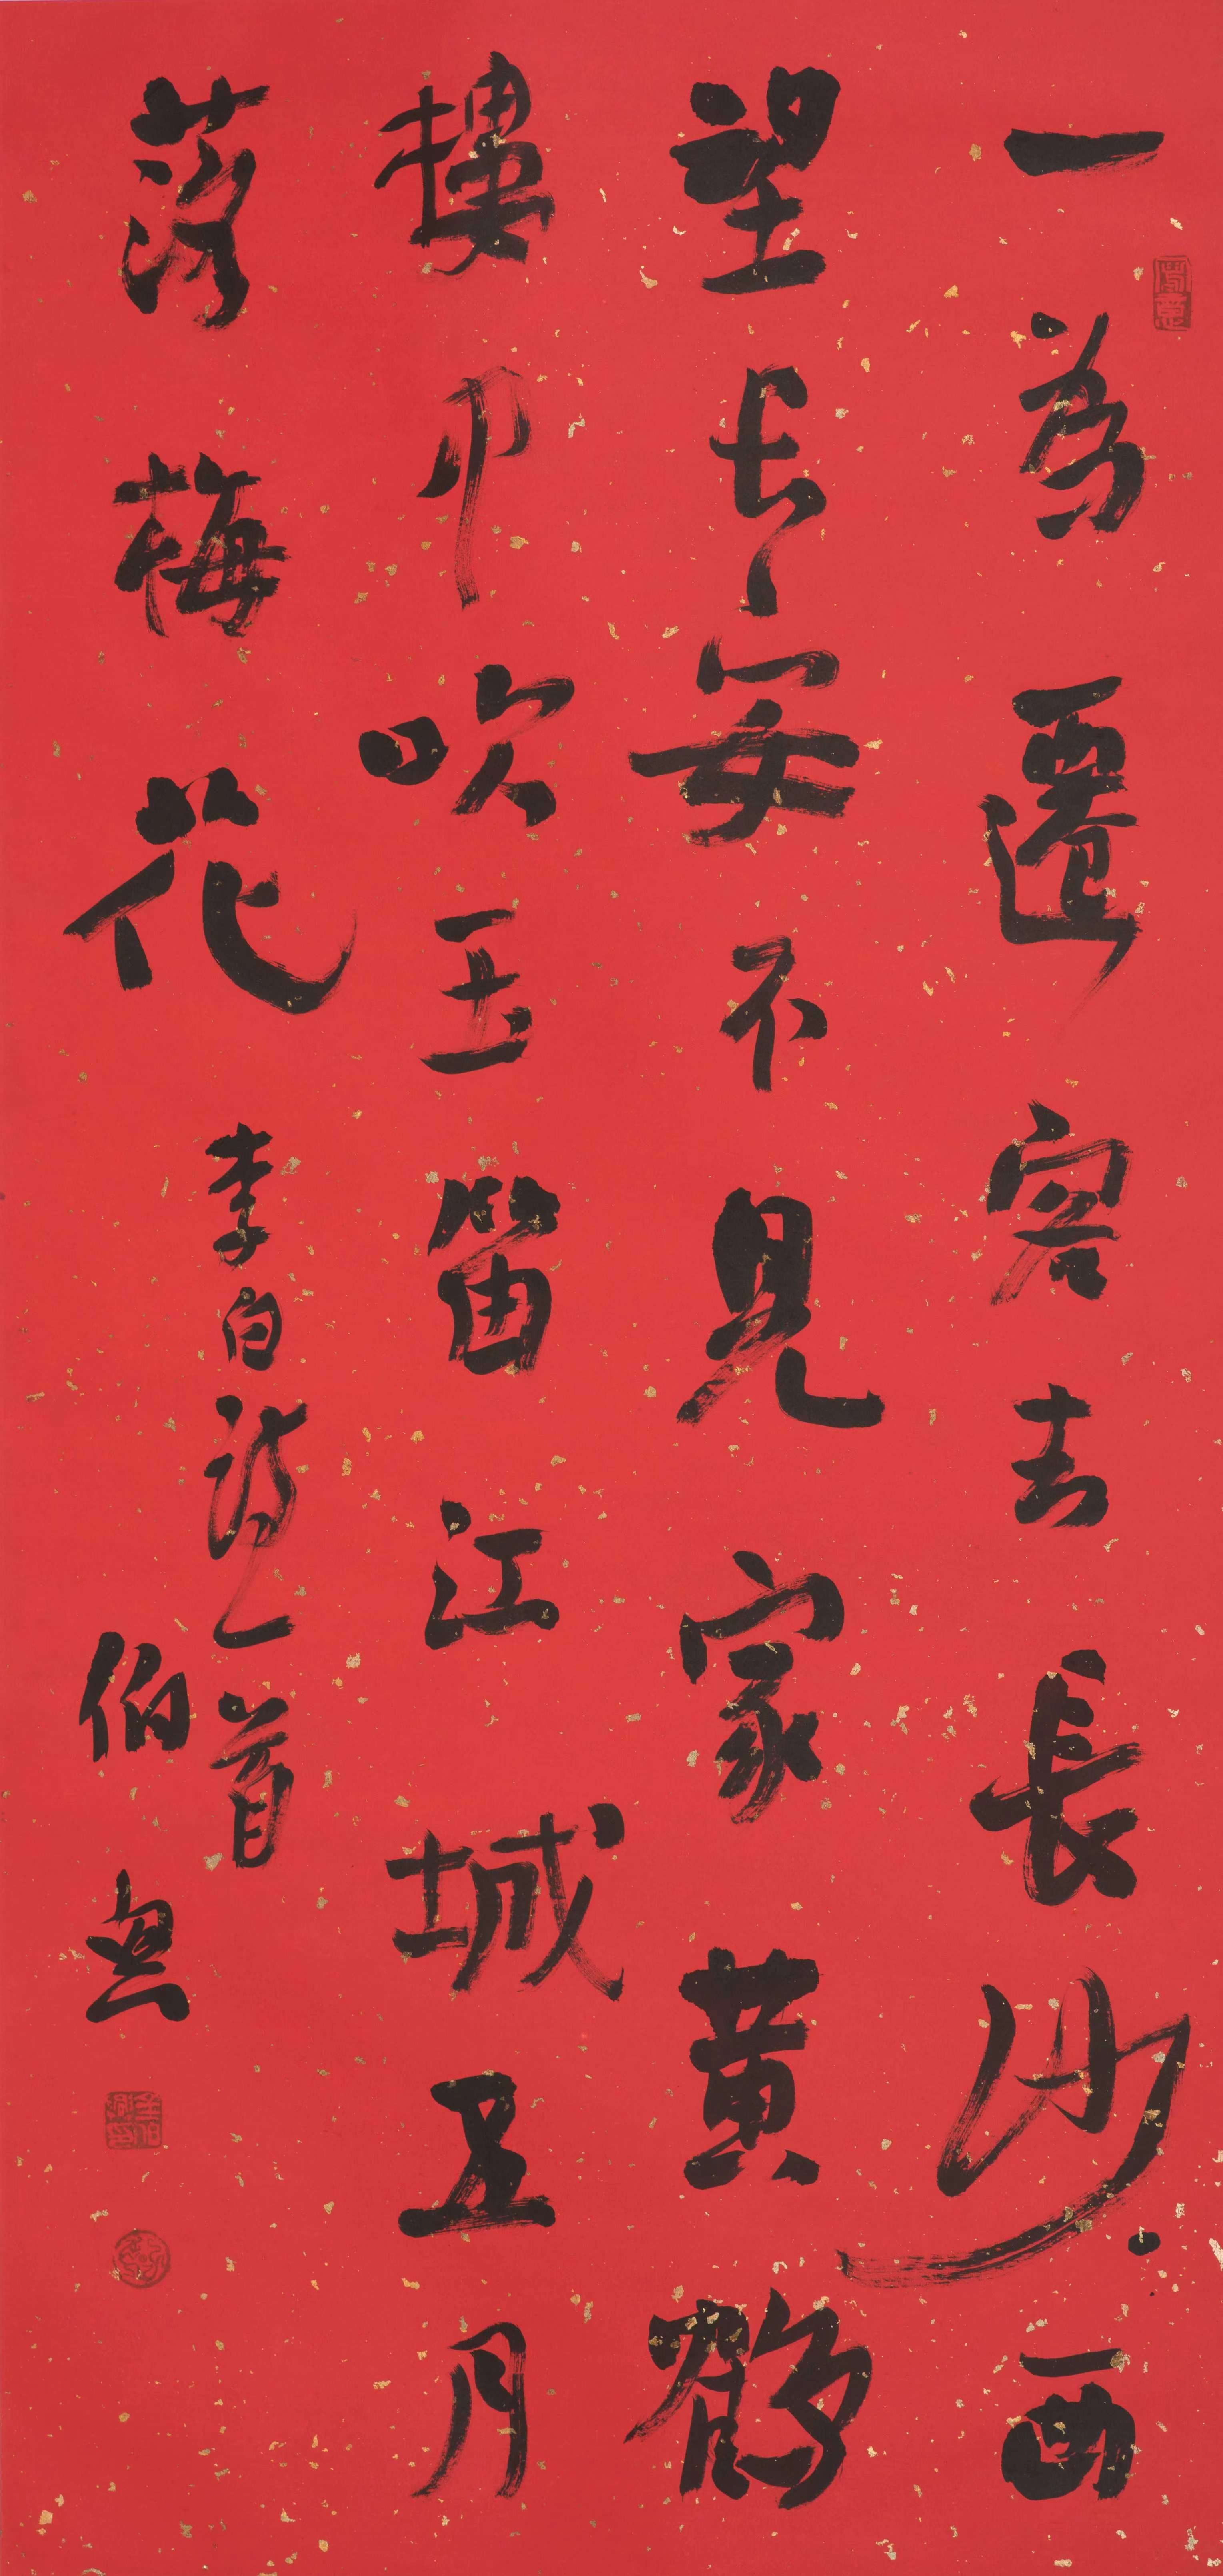 一為遷客去長沙西
望長安不見家黃鶴
樓中吹玉笛江城五月
落梅花
李白詩一首
伯